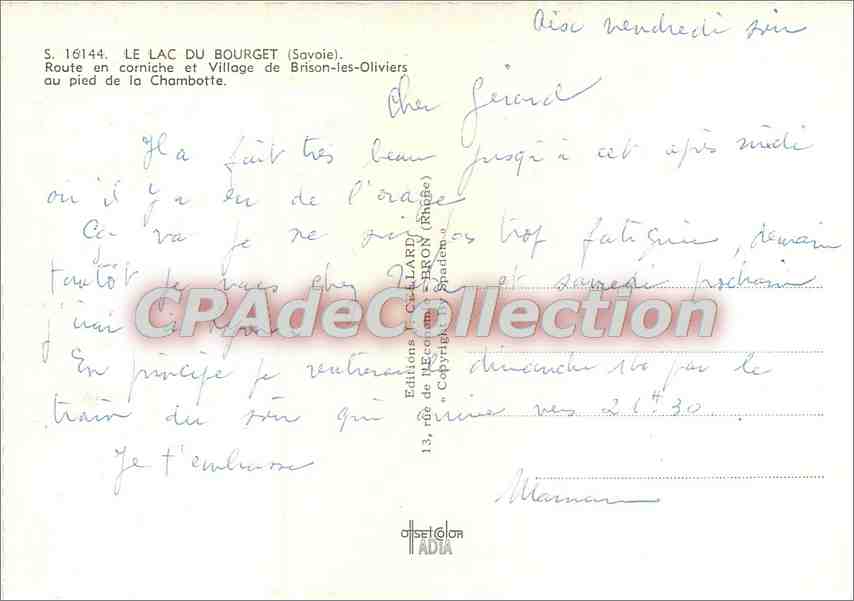 Aix vendredi soir
S. 16144. LE LAC DU BOURGET (Savoie).
Route en corniche et Village de Brison-les-Oliviers
au pied de la Chambotte.
Cher Gérard
Il a fait très beau jusqu'à cet après midi
où il y a eu de l'orage
Ca va je ne suis pas trop fatiguée, demain
tantôt je vais chez et samedi prochain
j'irai à
En principe je rentrerai le dimanche 16 par le
train du soir qui arrive vers 21H30
Je t'embrasse
Maman
Editions J. CELLARD
13, rue de l'Economie - BRON (Rhône)
" Copyright By Spadem "
CPAdeCollection
OFFSETCOLOR
ADIA